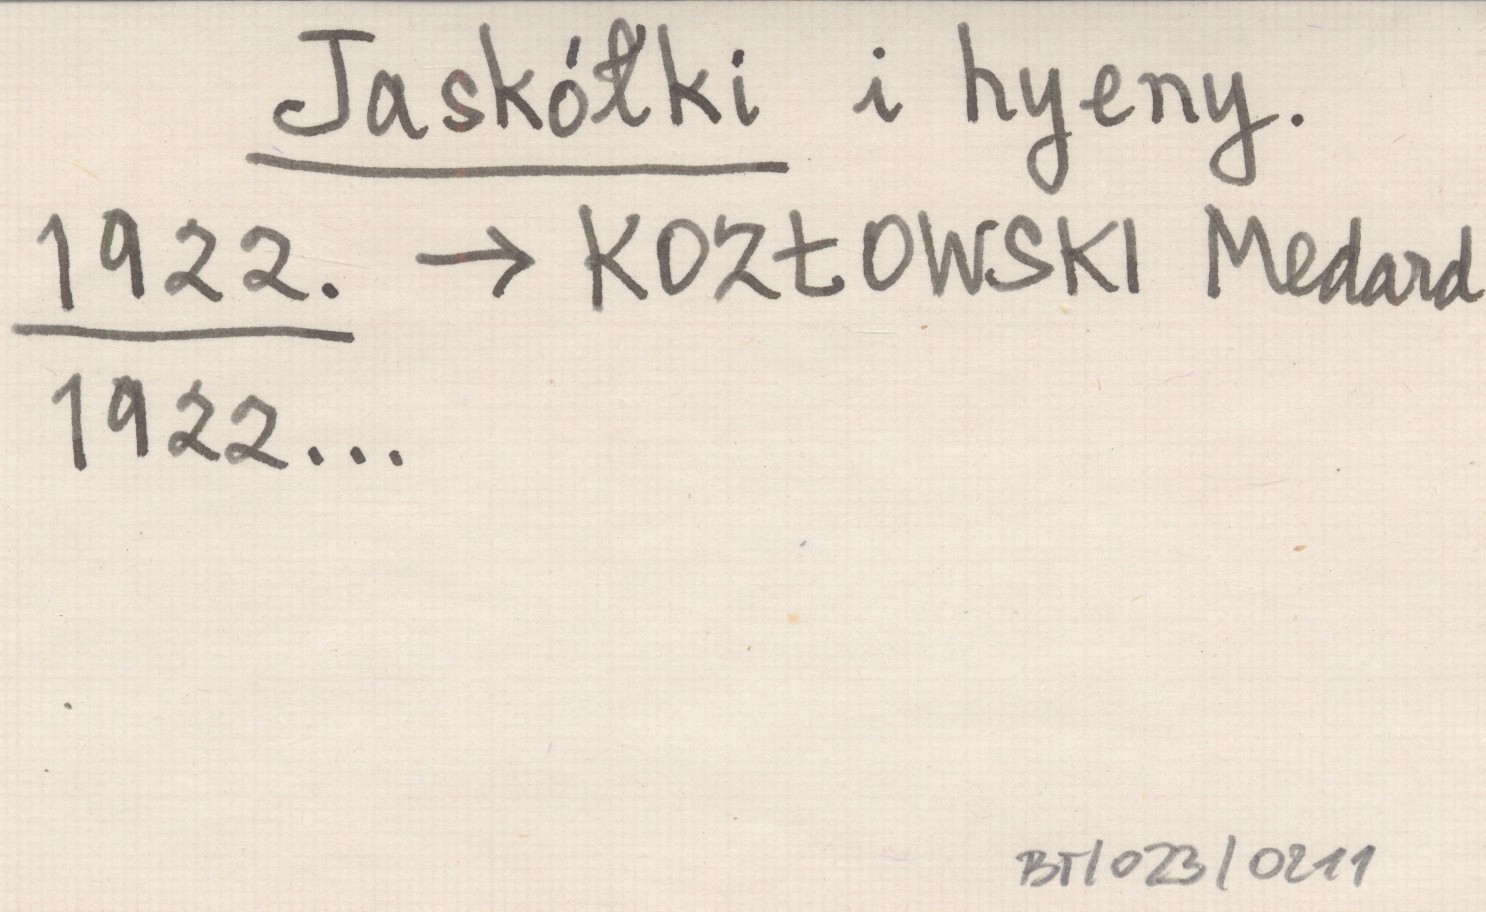 Jaskółki i hyeny.
1922. → KOZŁOWSKI Medard
1922...
BT/023/0211